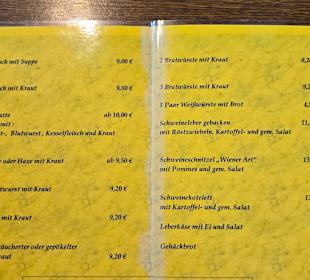 ch mit Suppe 9,00 €
ch mit Kraut 9,50 €
atte ab 10,00 €
mit :
t-, Blutwurst , Kesselfleisch und Kraut
e oder Haxe mit Kraut ab 9,50 €
twurst mit Kraut 9,20 €
mit Kraut 9,20 €
äucherter oder gepökelter
raut 9,20 €
2 Bratwürste mit Kraut 8,2
3 Bratwürste mit Kraut 9,2
1 Paar Weißwürste mit Brot 4,5
Schweineleber gebacken 11,
mit Röstzwiebeln, Kartoffel- und gem. Salat
Schweineschnitzel „Wiener Art“ 13
mit Pommes und gem. Salat
Schweinekotelett 13
mit Kartoffel- und gem. Salat
Leberkäse mit Ei und Salat
Gehäckbrot